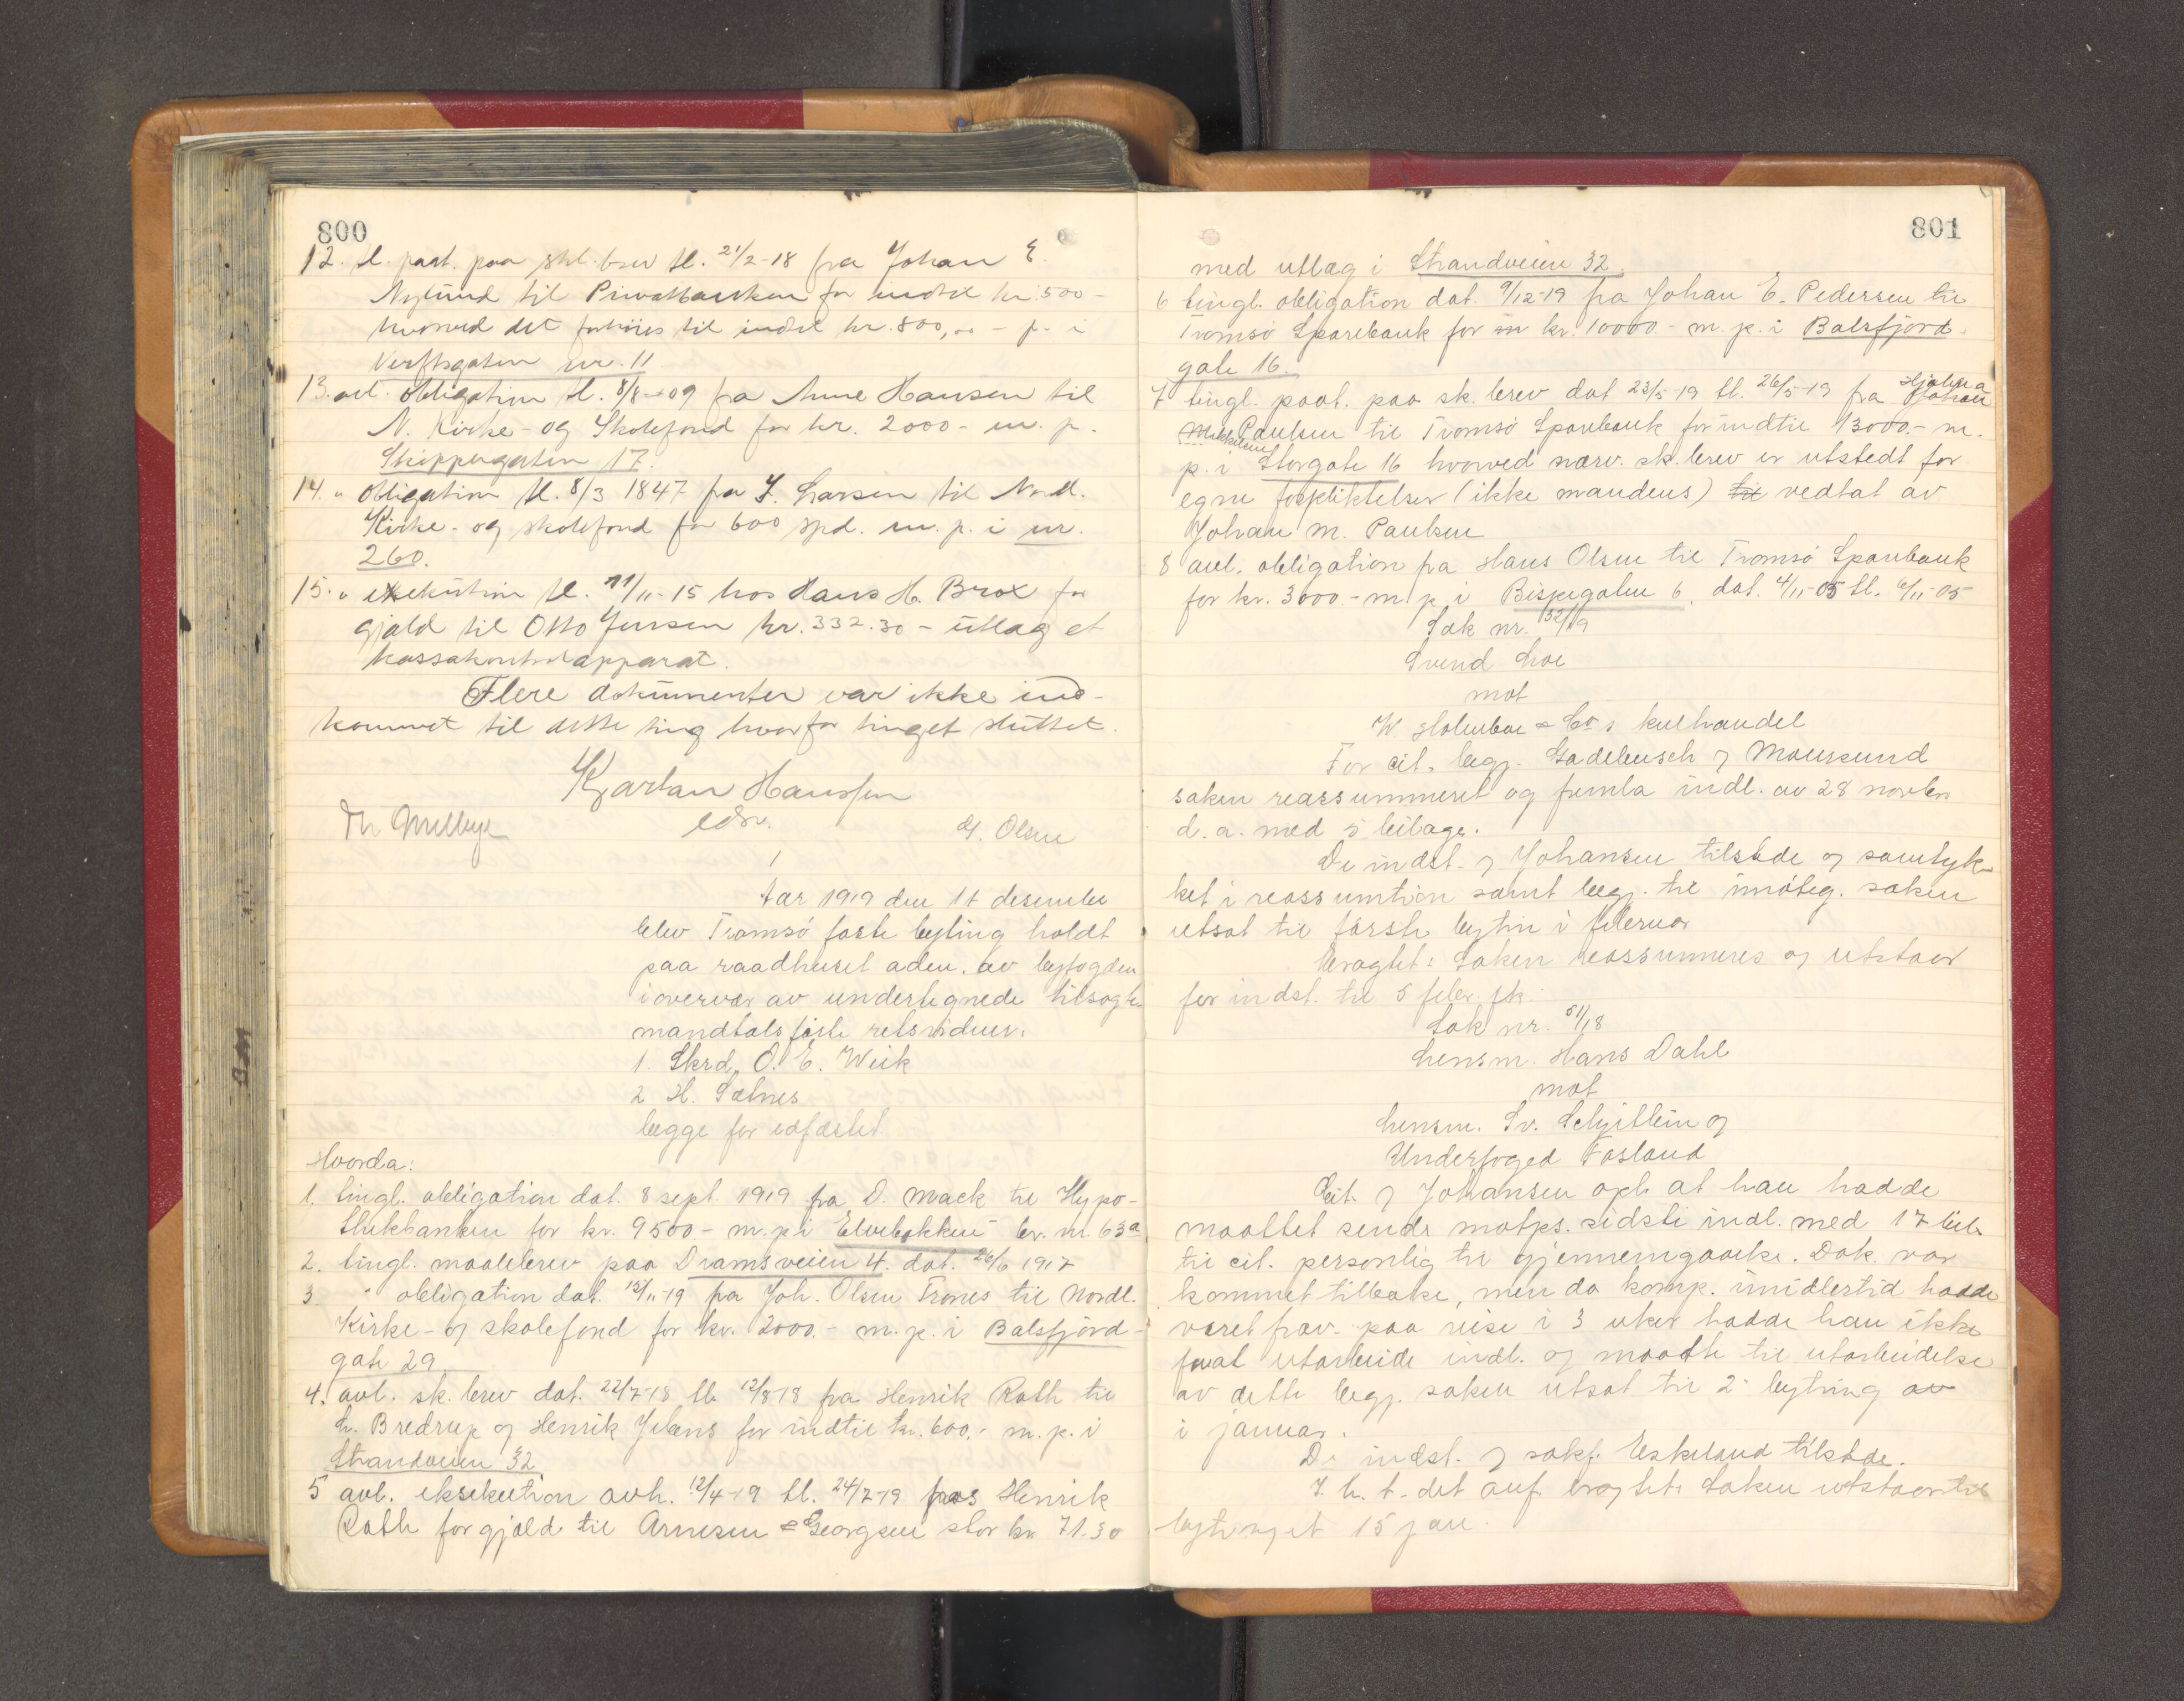 800
12. tl. paat. paa skl. brev tl. 21/2-18 fra Johan E.
Nylund til Privatbanken for indtil kr. 500 -
hvorved det forhøies til indtil kr. 800,00 - p. i
Verftsgaten nr. 11.
13. avl. obligation tl. 8/8-09 fra Anne Hansen til
N. Kirke- og Skolefond for kr. 2000 - m. p.
Skippergaten 17.
14. " obligation tl. 8/3 1847 fra J. Larsen til Nordl.
Kirke- og skolefond for 600 spd. m. p. i nr.
260.
15. " exekution tl. 11/11-15 hos Hans H. Brox for
gjæld til Otto Jensen kr. 332.30 - utlæg et
kassakontrolapparat.
Flere dokumenter var ikke ind-
kommet til dette ting hvorfor tinget sluttet.
Kjartan Hanssen
edsv.
G. Olsen
Aar 1919 den 11 desember
blev Tromsø faste byting holdt
paa raadhuset adm. av byfogden
i overvær av undertegnede tilsagte
mandtalsførte retsvidner.
1. Skrd. O. E. Wiik
2 H. Sætnes
begge før edfæstet
Hvorda:
1. tingl. obligation dat. 8 sept. 1919 fra D. Mack til Hypo-
thekbanken for kr. 9500 - m. p. i Elvebakken br. nr. 63a
2. tingl. maalebrev paa Dramsveien 4. dat. 26/6 1917
3. " obligation dat. 15/11-19 fra Joh. Olsen Trones til Nordl.
Kirke- og skolefond for kr. 2000.- m. p. i Balsfjord-
gate 29.
4. avl. sk. brev dat. 22/7-18 tl. 12/8-18 fra Henrik Rath til
L. Bredrup og Henrik Jebens for indtil kr. 600.- m. p. i
Strandveien 32
5 avl. eksekution avh. 12/4-19 tl. 24/7-19 hos Henrik
Rath for gjæld til Arnesen & Georgsen stor kr. 71.30
801
med utlæg i Strandveien 32.
6 tingl. obligation dat. 9/12-19 fra Johan E. Pedersen til
Tromsø Sparebank for kr. 10000 - m. p. i Balsfjord-
gate 16.
7 tingl. paat. paa sk. brev dat 23/5-19 tl. 26/5-19 fra Hjalma
Mikkelsen Paulsen til Tromsø Sparebank for indtil 13000.- m.
p. i Storgate 16 hvorved nærv. sk. brev er utstedt for
egne forpliktelser (ikke mandens) til vedtat av
Johan M. Paulsen
8 avl. obligation fra Hans Olsen til Tromsø Sparebank
for kr. 3000.- m. p. i Bispegaten 6. dat. 4/11-05 tl. 6/11-05
Sak nr. 32/19
Svend Loe
mot
W Holmboe & Co s kulhandel
For cit. begj. Gadebusch og Moursund
saken reassummeret og fremla indl. av 28 novbr.
d. a. med 5 bilage.
De indst. og Johansen tilstede og samtyk-
ket i reassumtion samt begj. til imøteg. saken
utsat til første bytin i februar
Eragtet: Saken reassummeres og utstaar
for indst. til 5 febr. fk.
Sak nr. 51/18
Lensm. Hans Dahl
mot
Lensm. Sv. Schjitlein og
Underfoged Fosland
Cit. og Johansen opl. at han hadde
maattet sende motps. sidste indl. med 17 bil.
til cit. personlig til gjennemgaaelse. Dok. var
kommet tilbake, men da komp. imidlertid hadde
været frav. paa reise i 3 uker hadde han ikke
faat utarbeide indl. og maatte til utarbeidelse
av dette begj. saken utsat til 2 bytning av
i januar.
De indst. og sakf. Eskeland tilstede.
I h. t. det anf. eragtet: Saken utstaar til
bytinget 15 jan.